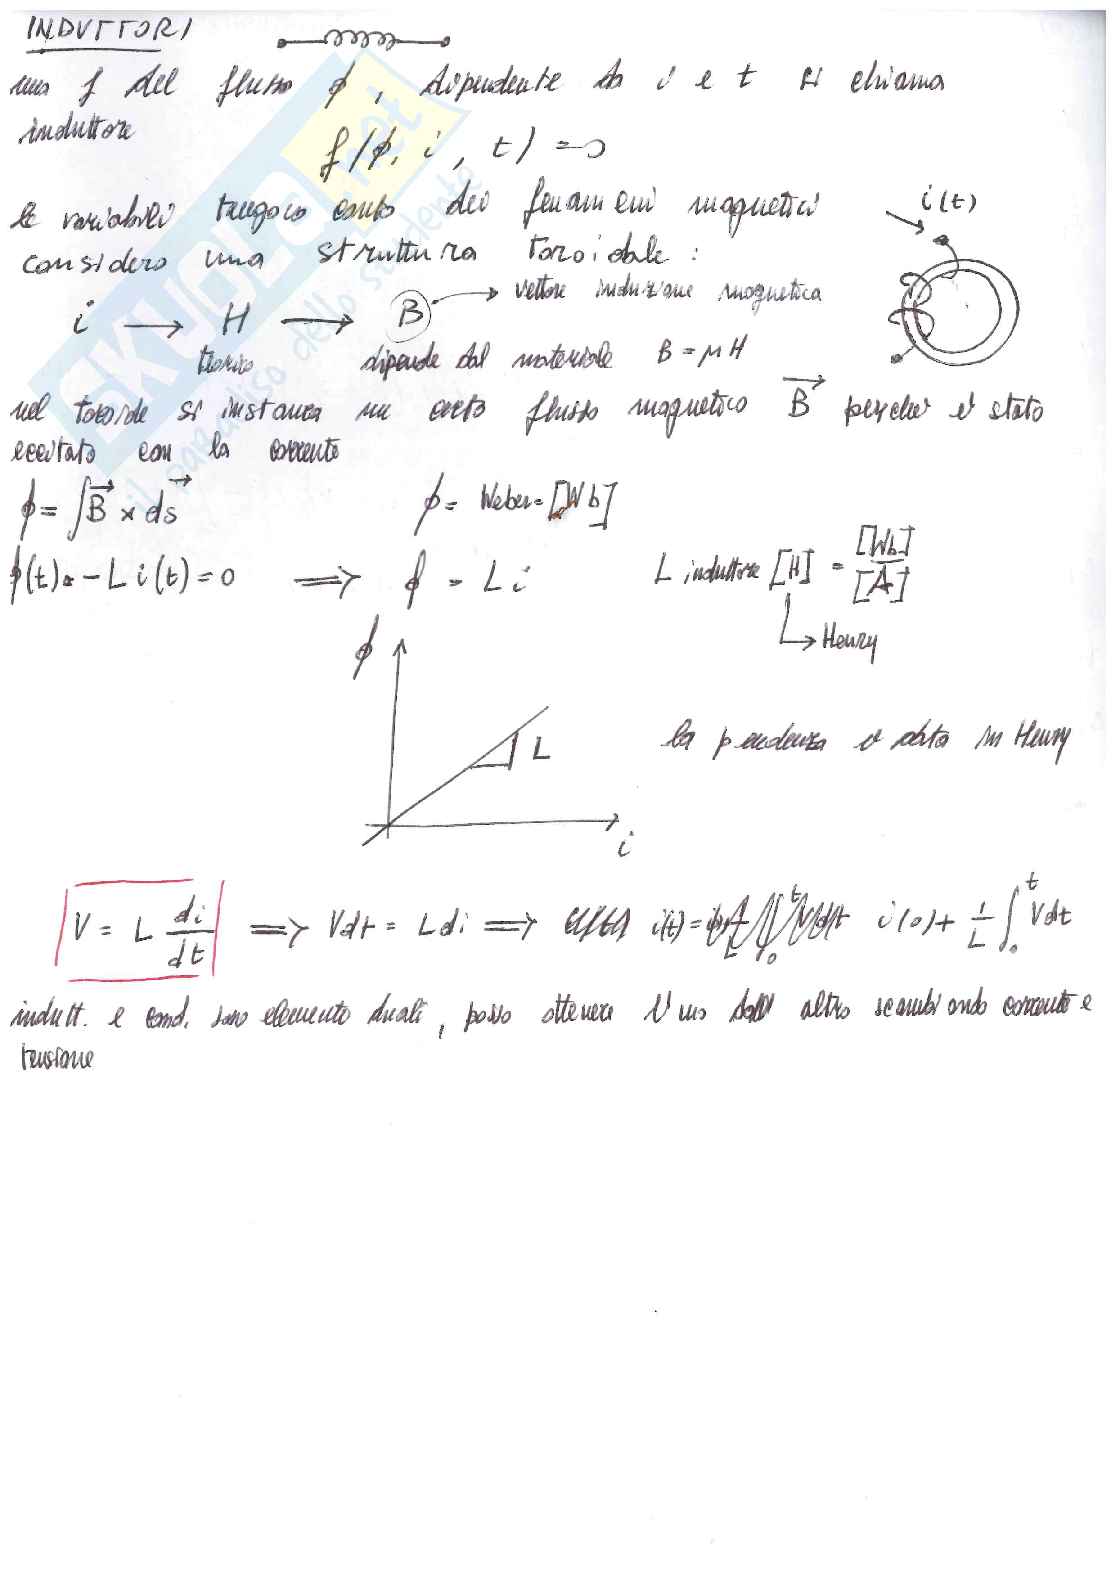 INDUTTORI
una f del flusso φ, dipendente da i e t si chiama
induttore
f(φ, i, t) = 0
le variabili tengono conto dei fenomeni magnetici
i(t)
considero una struttura toroidale :
i → H → B → vettore induzione magnetica
teorico dipende dal materiale B = μH
nel toroide si instaura un certo flusso magnetico B⃗ perché è stato
eccitato con la corrente
φ = ∫B⃗ × ds⃗ φ = Weber = [Wb]
φ(t) - L i(t) = 0 ⟹ φ = L i L induttore [H] = [Wb]/[A]
Henry
φ
L
la pendenza è data in Henry
i
V = L di/dt ⟹ Vdt = Ldi ⟹ i(t) = i(0) + 1/L ∫₀ᵗ Vdt
indutt. e cond. sono elemento duali, posso ottenere l'uno dall altro scambiando corrente e
tensione
SKUOLA.net
il paradiso dello studente